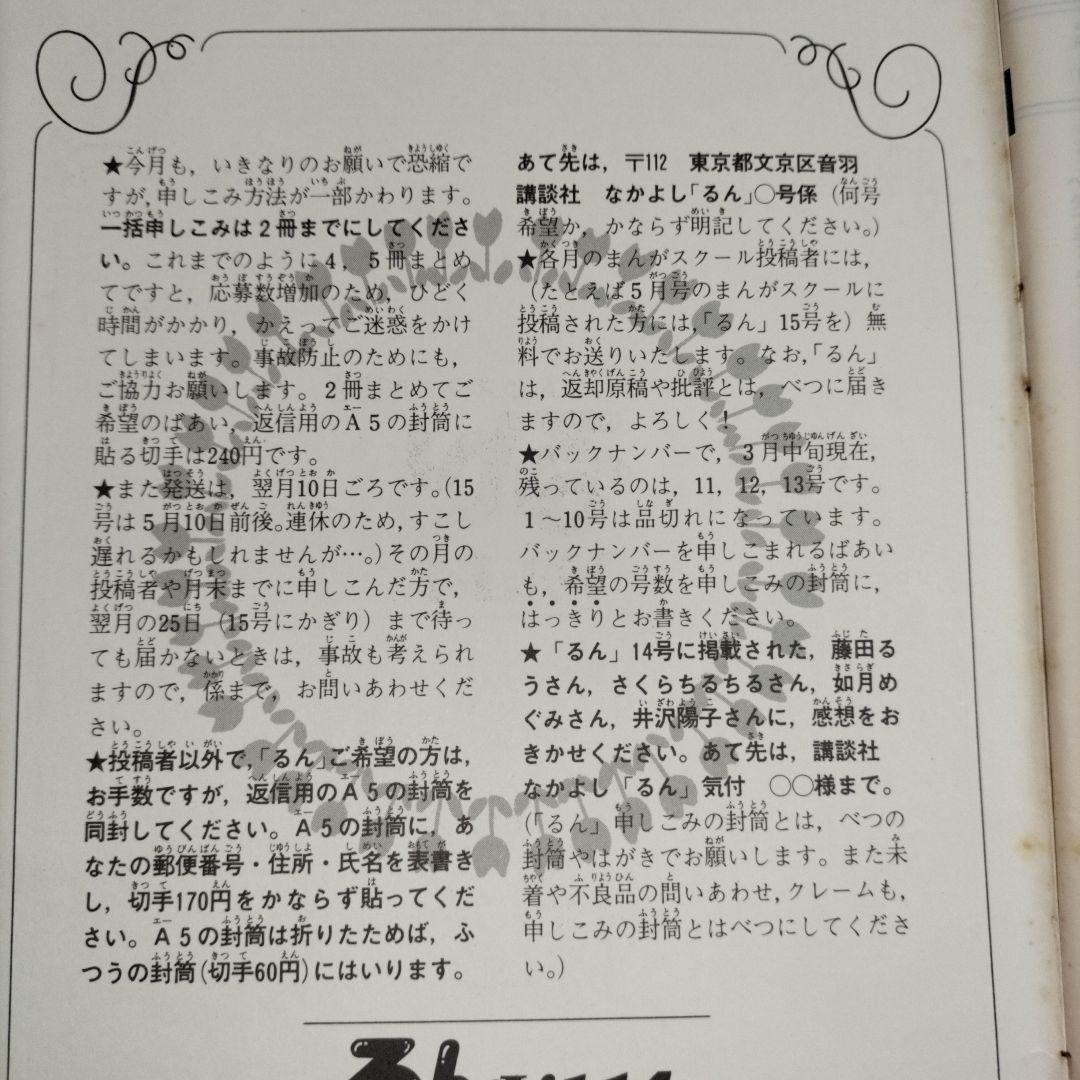 ★今月も，いきなりのお願いで恐縮で
すが，申しこみ方法が一部かわります。
一括申しこみは2冊までにしてくださ
い。これまでのように4，5冊まとめ
てですと，応募数増加のため，ひどく
時間がかかり，かえってご迷惑をかけ
てしまいます。事故防止のためにも，
ご協力お願いします。2冊まとめてご
希望のばあい，返信用のA5の封筒に
貼る切手は240円です。
★また発送は，翌月10日ごろです。(15
号は5月10日前後。連休のため，すこし
遅れるかもしれませんが…。)その月の
投稿者や月末までに申しこんだ方で，
翌月の25日（15号にかぎり）まで待っ
ても届かないときは，事故も考えられ
ますので，係まで，お問いあわせくだ
さい。
★投稿者以外で，「るん」ご希望の方は，
お手数ですが，返信用のA5の封筒を
同封してください。A5の封筒に，あ
なたの郵便番号・住所・氏名を表書き
し，切手170円をかならず貼ってくだ
さい。A5の封筒は折りたためば，ふ
つうの封筒(切手60円)にはいります。
あて先は，〒112　東京都文京区音羽
講談社　なかよし「るん」○号係（何号
希望か，かならず明記してください。）
★各月のまんがスクール投稿者には，
（たとえば5月号のまんがスクールに
投稿された方には，「るん」15号を）無
料でお送りいたします。なお，「るん」
は，返却原稿や批評とは，べつに届き
ますので，よろしく！
★バックナンバーで，3月中旬現在，
残っているのは，11，12，13号です。
1〜10号は品切れになっています。
バックナンバーを申しこまれるばあい
も，希望の号数を申しこみの封筒に，
はっきりとお書きください。
★「るん」14号に掲載された，藤田る
うさん，さくらちるちるさん，如月め
ぐみさん，井沢陽子さんに，感想をお
きかせください。あて先は，講談社
なかよし「るん」気付　○○様まで。
(「るん」申しこみの封筒とは，べつの
封筒やはがきでお願いします。また未
着や不良品の問いあわせ，クレームも，
申しこみの封筒とはべつにしてくださ
い。)
るん